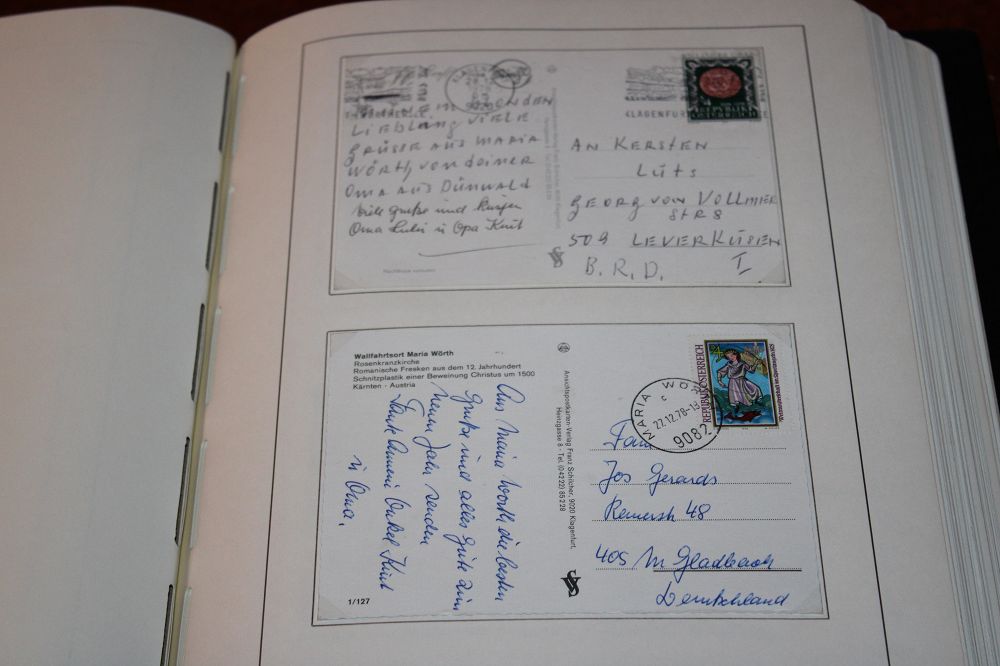 KLAGENFURT
REPUBLIK
ÖSTERREICH
LIEBLING VIELE
GRÜSSE AUS MARIA
WÖRTH, VON DEINER
OMA AUS DÜNWALD
Viele Grüße und
Oma Luhi u Opa Knut
AN KERSTEN
LÜTS
GEORG VON VOLLMER
STR 8
509 LEVERKUSEN
B.R.D. I
Wallfahrtsort Maria Wörth
Rosenkranzkirche
Romanische Fresken aus dem 12. Jahrhundert
Schnitzplastik einer Beweinung Christus um 1500
Kärnten - Austria
Aus Maria Wörth die besten
Grüße und alles Gute zum
neuen Jahr senden
Tante Onkel Knut
u Oma.
1/127
Ansichtspostkarten-Verlag Franz Schilcher, 9020 Klagenfurt,
Henzgasse 8 - Tel. (04222) 85228
REPUBLIK ÖSTERREICH
MARIA WÖR
c
22.12.78-13
9082
Fam
Jos Gerards
48
405 M Gladbach
Deutschland